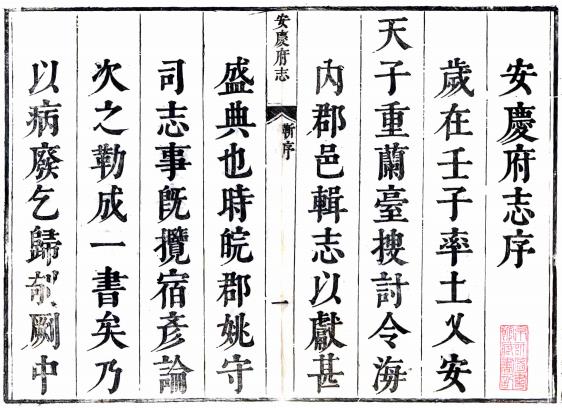 安慶府志序
歲在壬子率土乂安
天子重蘭臺搜討令海
內郡邑輯志以獻甚
安慶府志
新序
一
盛典也時皖郡姚守
司志事既攬宿彥論
次之勒成一書矣乃
以病廢乞歸剞劂中